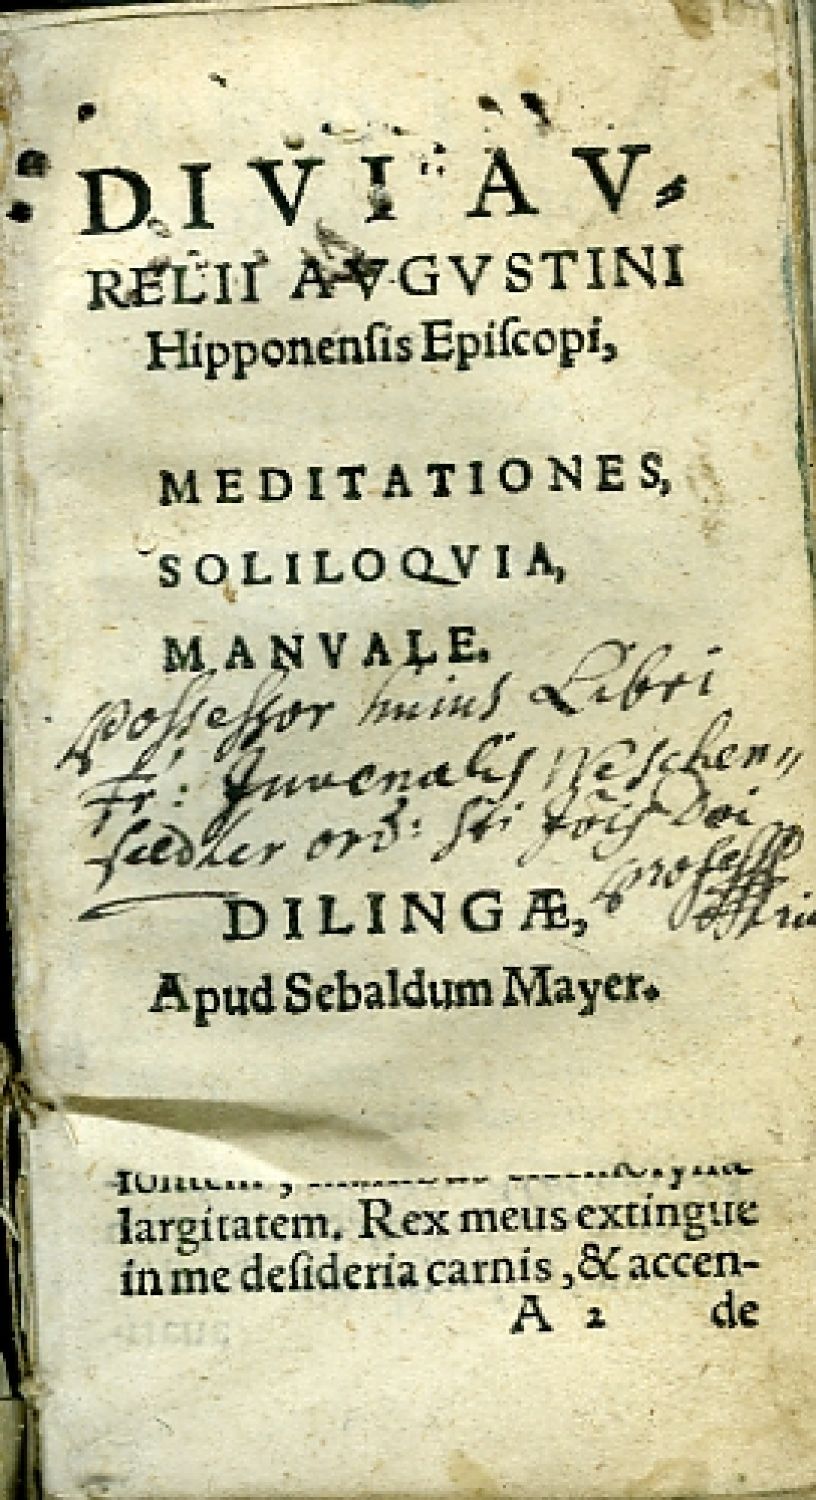 DIVI AV-
RELII AVGVSTINI
Hipponenſis Epiſcopi,
MEDITATIONES,
SOLILOQVIA,
MANVALE.
Possessor huius Libri
Fr: Juuenalis Weschen„
feldler ord: Sti Jōis Dei
Professus
DILINGÆ,
Apud Sebaldum Mayer.
largitatem. Rex meus extingue
in me deſideria carnis, & accen-
A 2 de